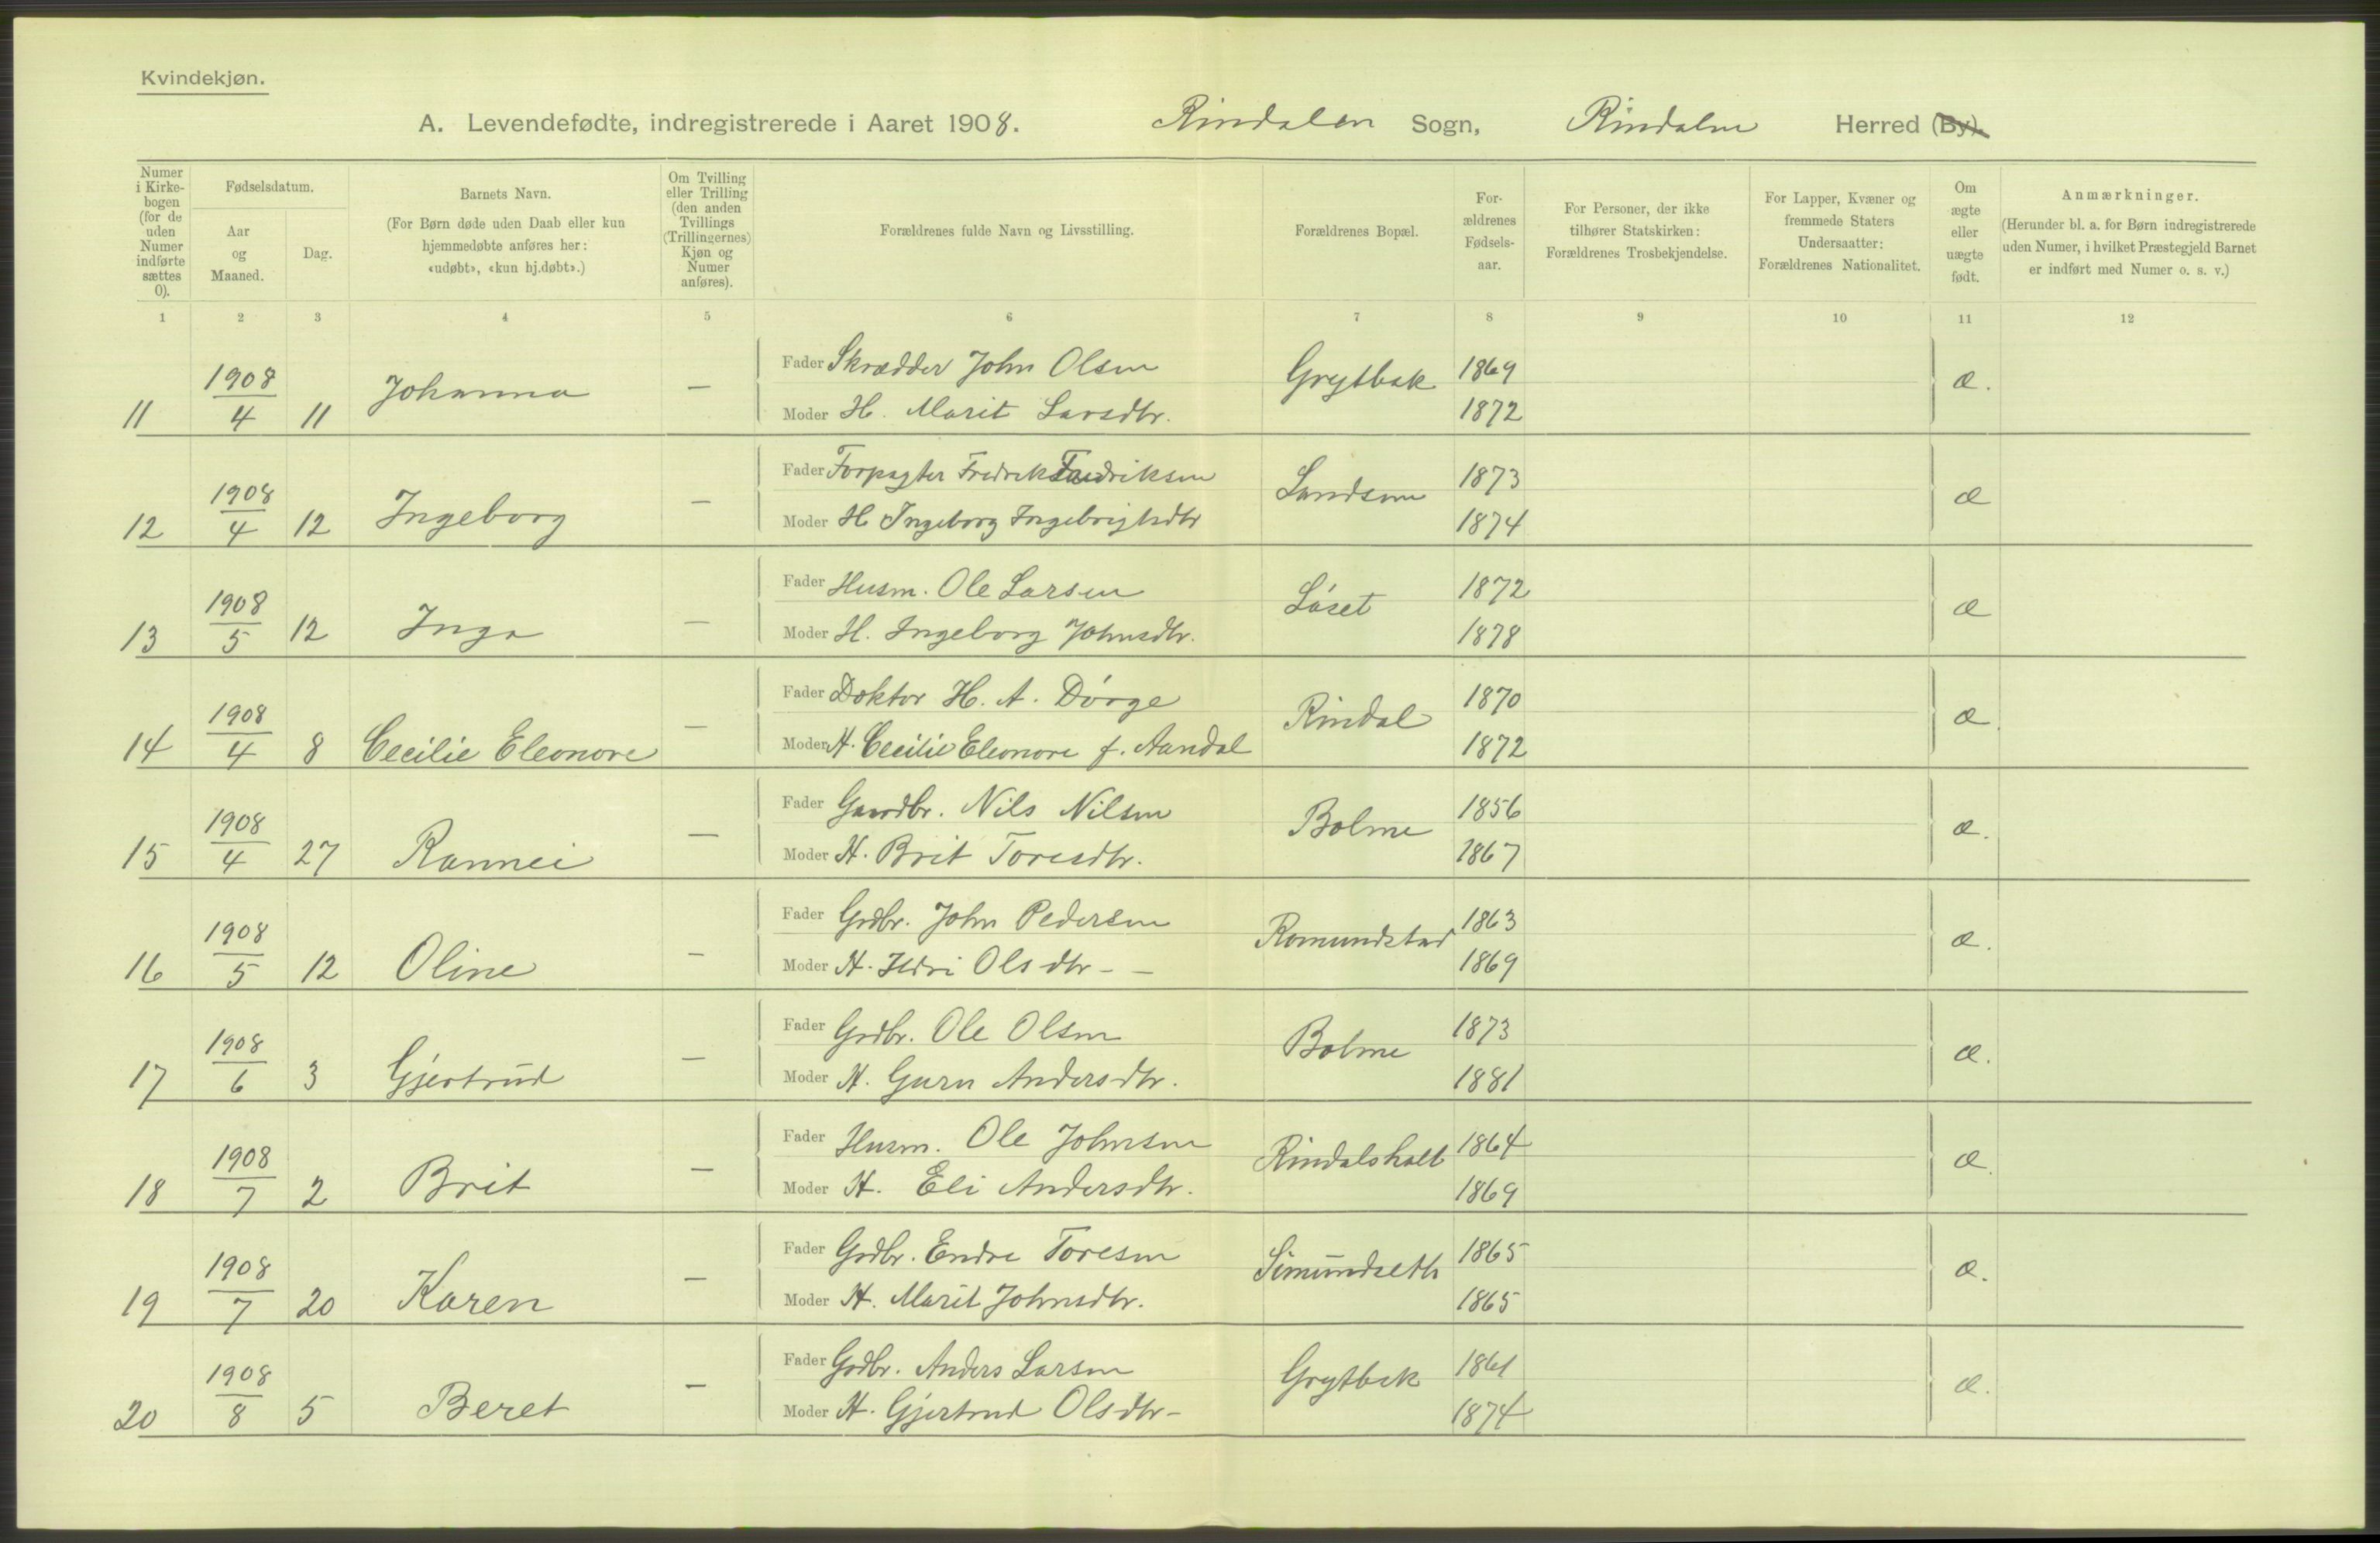 Kvindekjøn.
A. Levendefødte, indregistrerede i Aaret 1908. Rindalen Sogn, Rindalen Herred (By).
Numer i Kirkebogen (for de uden Numer indførte sættes 0).
Fødselsdatum.
Aar og Maaned.
Dag.
Barnets Navn.
(For Børn døde uden Daab eller kun hjemmedøbte anføres her: «udøbt», «kun hj.døbt».)
Om Tvilling eller Trilling (den anden Tvillings (Trillingernes) Kjøn og Numer anføres).
Forældrenes fulde Navn og Livsstilling.
Forældrenes Bopæl.
Forældrenes Fødselsaar.
For Personer, der ikke tilhører Statskirken: Forældrenes Trosbekjendelse.
For Lapper, Kvæner og fremmede Staters Undersaatter: Forældrenes Nationalitet.
Om ægte eller uægte født.
Anmærkninger.
(Herunder bl. a. for Børn indregistrerede uden Numer, i hvilket Præstegjeld Barnet er indført med Numer o. s. v.)
1 2 3 4 5 6 7 8 9 10 11 12
11 1908/4 11 Johanna — Fader Skrædder John Olsen Grytbak 1869 æ.
Moder H. Marit Larsdtr. 1872
12 1908/4 12 Ingeborg — Fader Forpagter Fredrik Fredriksen 1873 æ
Moder H Ingeborg Ingebrigtsdtr 1874
13 1908/5 12 Inga — Fader Husm. Ole Larsen Løset 1872 æ
Moder H. Ingeborg Johnsdtr. 1878
14 1908/4 8 Cecilie Eleonore — Fader Doktor H. A. Dørge Rindal 1870 æ.
Moder H. Cecilie Eleonore f. Aandal 1872
15 1908/4 27 Rannei — Fader Gaardbr. Nils Nilsen Bolme 1856 æ.
Moder H. Brit Toresdtr. 1867
16 1908/5 12 Oline — Fader Grdbr. John Pedersen Romundstad 1863 æ.
Moder H. Ildri Olsdtr - - 1869
17 1908/6 3 Gjertrud — Fader Grdbr. Ole Olsen Bolme 1873 æ.
Moder H. Guru Andersdtr. 1881
18 1908/7 2 Brit — Fader Husm. Ole Johnsen 1864 æ.
Moder H. Eli Andersdtr. 1869
19 1908/7 20 Karen — Fader Grdbr. Endre Toresen Simundseth 1865 æ.
Moder H. Marit Johnsdtr. 1865
20 1908/8 5 Beret — Fader Grdbr. Anders Larsen Grytbak 1861 æ.
Moder H. Gjertrud Olsdtr - 1874